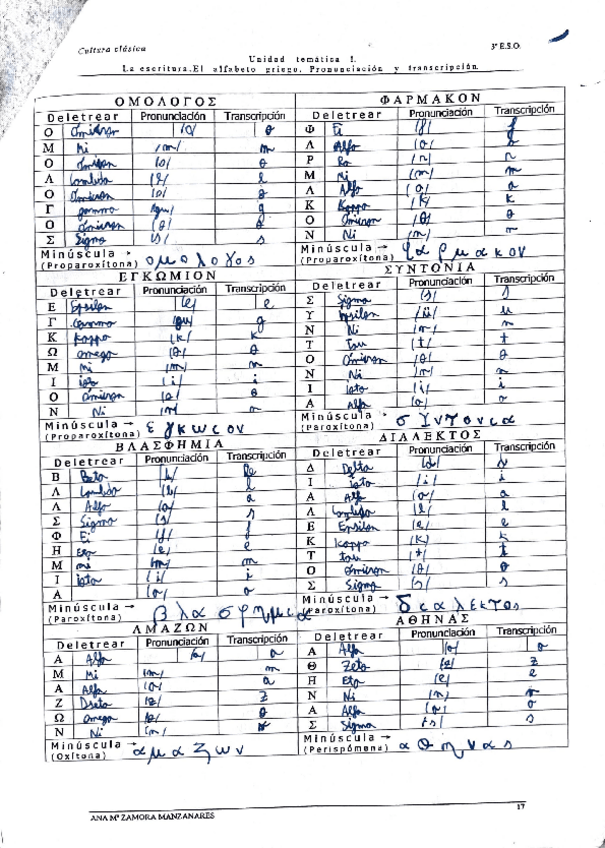 Cultura clásica 3º E.S.O.
Unidad temática 1.
La escritura. El alfabeto griego. Pronunciación y transcripción.
ΟΜΟΛΟΓΟΣ
Deletrear Pronunciación Transcripción
Ο Omicron /o/ o
Μ Mi /m/ m
Ο Omicron /o/ o
Λ /l/ l
Ο Omicron /o/ o
Γ gamma /gu/ g
Ο Omicron /o/ o
Σ Sigma /s/ s
Minúscula →
(Proparoxítona) ομολογος
ΦΑΡΜΑΚΟΝ
Deletrear Pronunciación Transcripción
Φ Fi /f/ f
Α Alfa /a/ a
Ρ Ro /r/ r
Μ Mi /m/ m
Α Alfa /a/ a
Κ Kappa /k/ k
Ο Omicron /o/ o
Ν Ni /n/ n
Minúscula →
(Proparoxítona) φαρμακον
ΕΓΚΩΜΙΟΝ
Deletrear Pronunciación Transcripción
Ε Epsilon /e/ e
Γ Gamma /gu/ g
Κ Kappa /k/ k
Ω omega /o/ o
Μ mi /m/ m
Ι iota /i/ i
Ο Omicron /o/ o
Ν Ni /n/ n
Minúscula →
(Proparoxítona)
ΣΥΝΤΟΝΙΑ
Deletrear Pronunciación Transcripción
Σ Sigma /s/ s
Υ
Ν Ni /n/ n
Τ tau /t/ t
Ο Omicron /o/ o
Ν Ni /n/ n
Ι iota /i/ i
Α Alfa /a/ a
Minúscula
(Paroxítona) συντονια
ΒΛΑΣΦΗΜΙΑ
Deletrear Pronunciación Transcripción
Β Beta /b/
Λ /l/ l
Α Alfa /a/ a
Σ Sigma /s/ s
Φ Fi /f/ f
Η Eta /e/ e
Μ mi /m/ m
Ι iota /i/ i
Α /a/ a
Minúscula →
(Paroxítona) βλασφημια
ΔΙΑΛΕΚΤΟΣ
Deletrear Pronunciación Transcripción
Δ Delta /d/
Ι iota /i/ i
Α Alfa /a/ a
Λ /l/ l
Ε Epsilon /e/ e
Κ Kappa /k/ k
Τ tau /t/ t
Ο Omicron /o/ o
Σ Sigma /s/ s
Minúscula →
(Paroxítona) διαλεκτος
ΑΜΑΖΩΝ
Deletrear Pronunciación Transcripción
Α Alfa /a/ a
Μ Mi /m/ m
Α Alfa /a/ a
Ζ Dseta /z/ z
Ω omega /o/ o
Ν Ni /n/
Minúscula →
(Oxítona) αμαζων
ΑΘΗΝΑΣ
Deletrear Pronunciación Transcripción
Α Alfa /a/ a
Θ Zeta /z/ z
Η Eta /e/ e
Ν Ni /n/ n
Α Alfa /a/ a
Σ Sigma /s/ s
Minúscula →
(Perispómena) αθηνας
17
ANA Mª ZAMORA MANZANARES